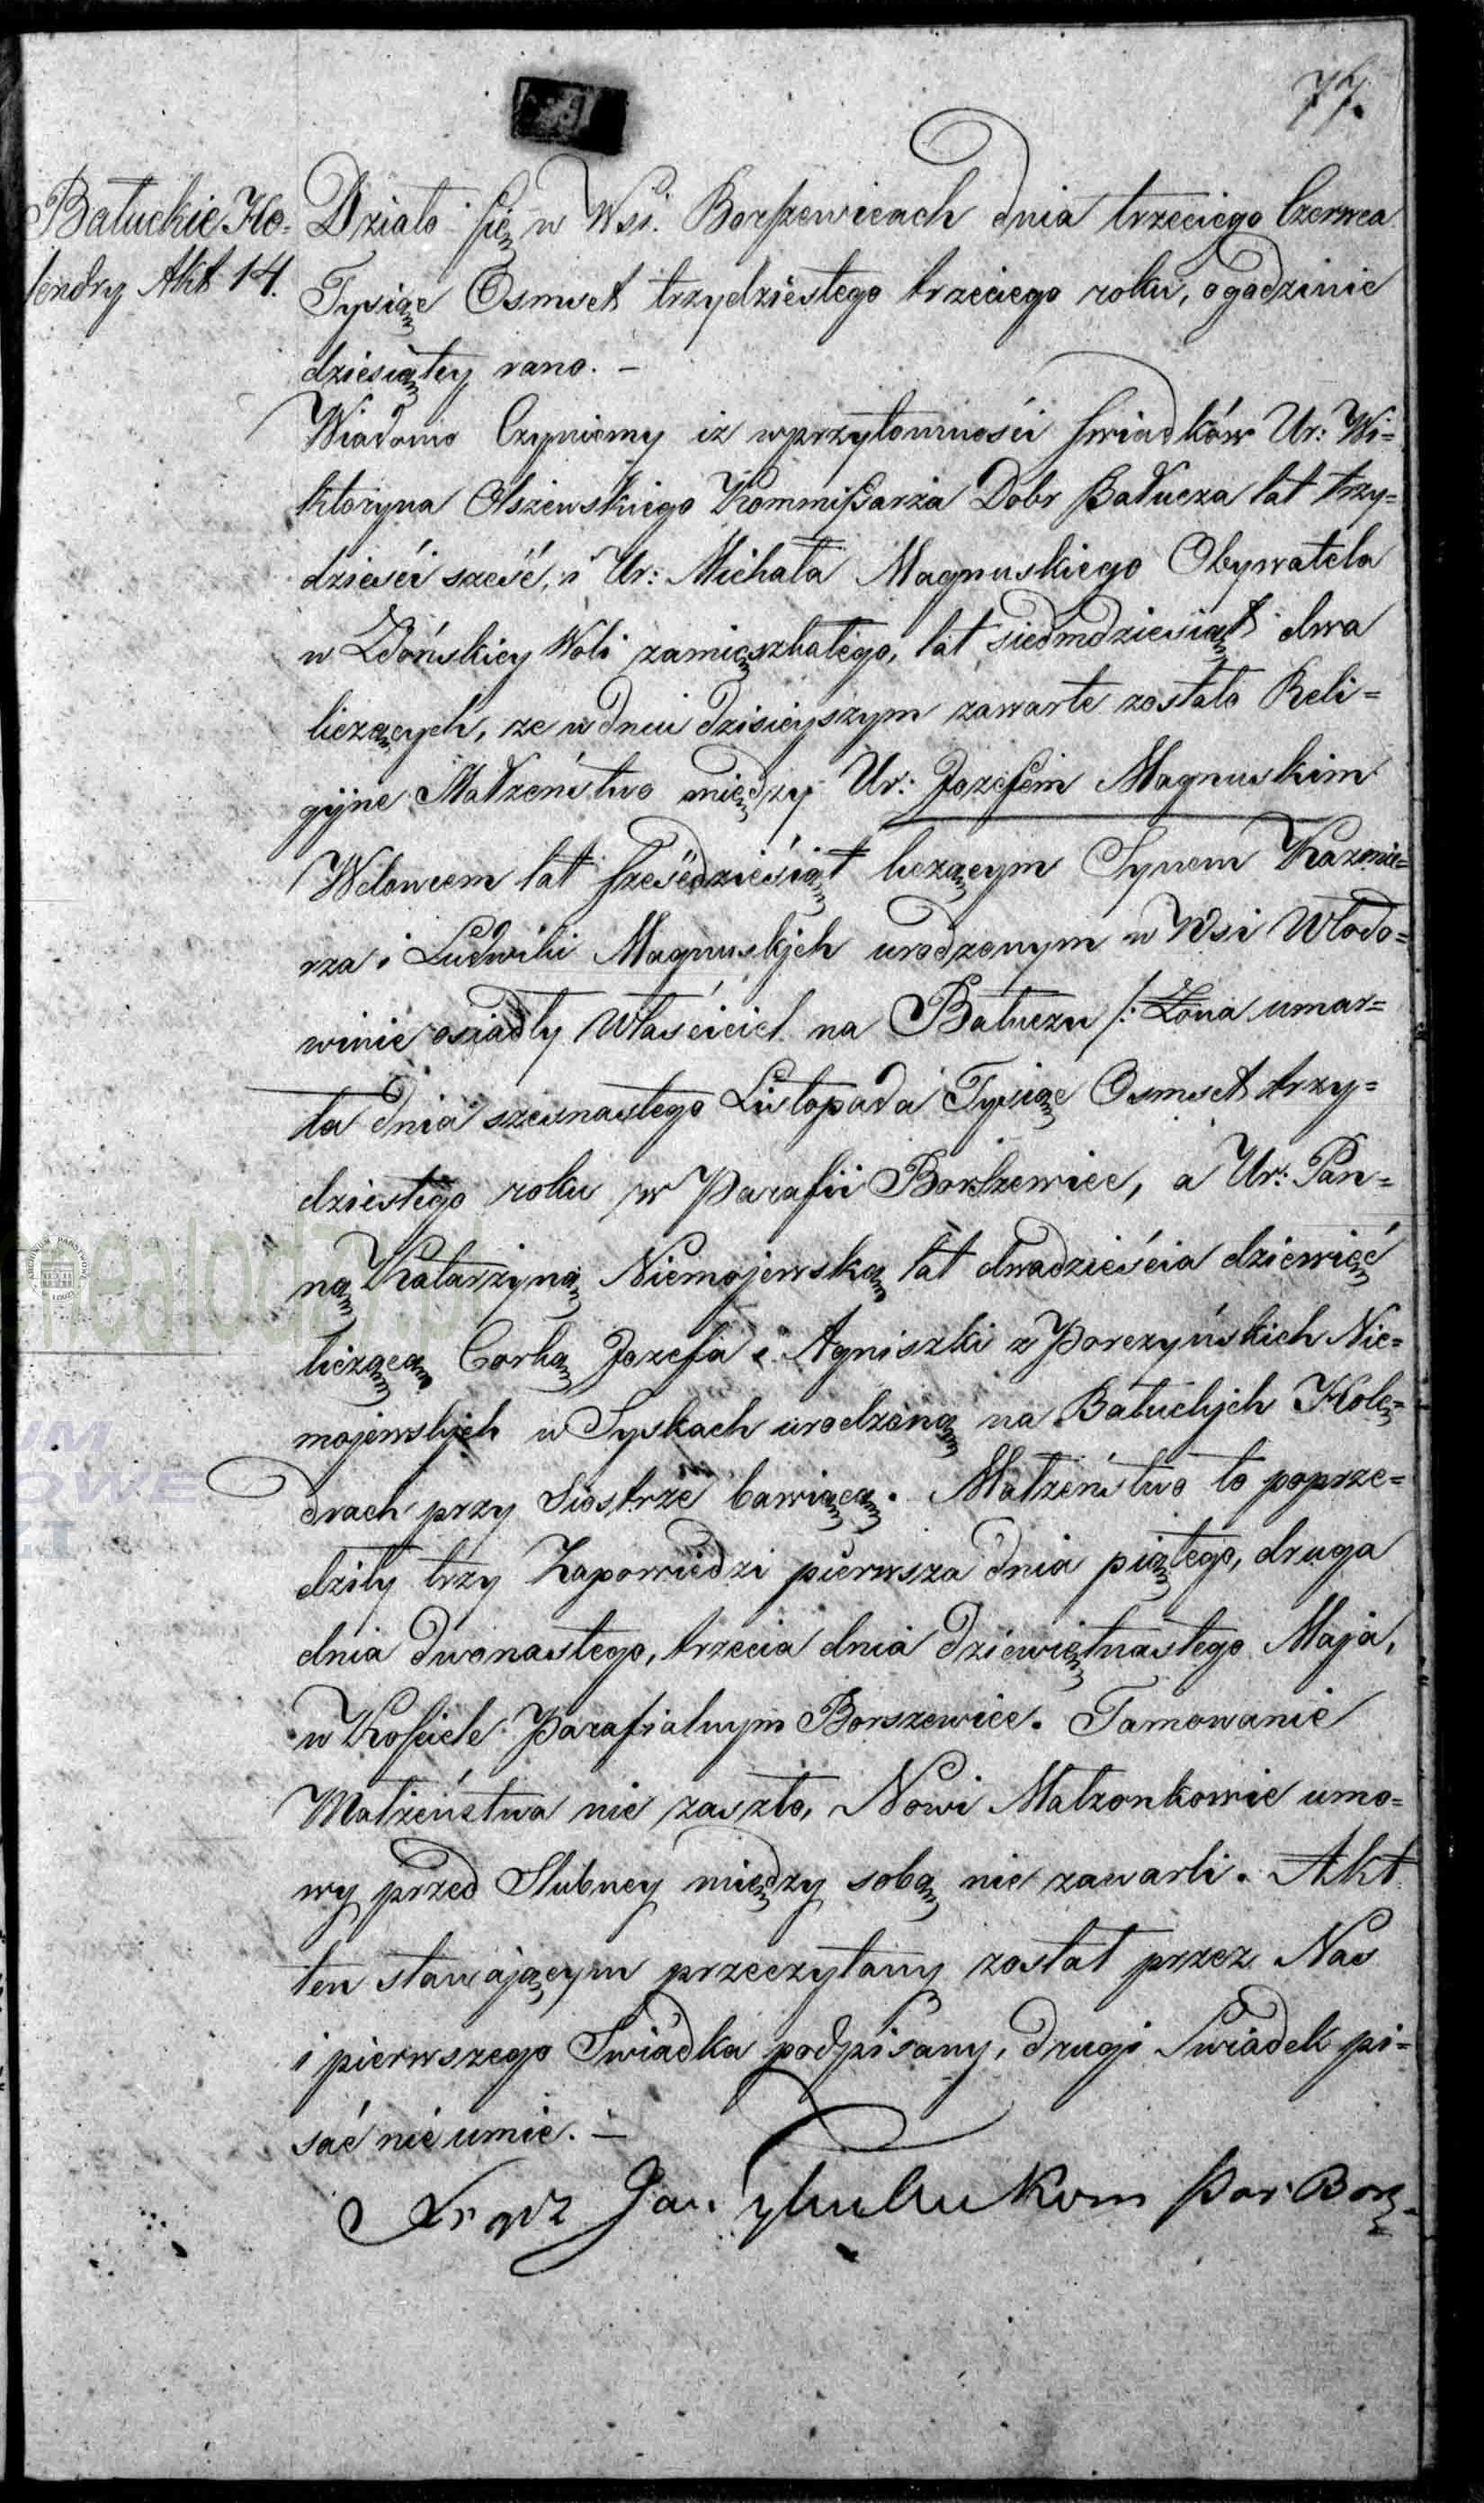 77.
Bałuckie Ho=
lendry Akt 14.
Działo się w Wsi Borszewicach dnia trzeciego Czerwca
Tysiąc Osmset trzydziestego trzeciego roku, o godzinie
dziesiątey rano. —
Wiadomo Czyniemy iż w przytomności świadków Ur: Wi=
ktoryna Olszewskiego Kommissarza Dobr Bałucza lat trzy=
dzieści sześć, i Ur: Michała Magnuskiego Obywatela
w Zdóńskiey Woli zamieszkałego, lat siedmdziesiąt dwa
liczących, że w dniu dzisieyszym zawarte zostało Reli=
gijne Małżeństwo między Ur: Jozefem Magnuskim
Wdowcem lat sześćdziesiąt liczącym Synem Kazmie=
rza i Ludwiki Magnuskich urodzonym w Wsi Włodo=
winie osiadły Właściciel na Bałuczu /: Żona umar=
ła dnia szesnastego Listopada Tysiąc Osmset trzy=
dziestego roku w Parafii Borszewice, a Ur: Pan=
ną Katarzyną Niemojewską lat dwadzieścia dziewięć
liczącą Corką Jozefa i Agniszki z Porczyńskich Nie=
mojewskich w Syskach urodzoną na Bałuckich Holę=
drach przy Siostrze bawiącą. Małżeństwo to poprze=
dziły trzy Zapowiedzi pierwsza dnia piątego, druga
dnia dwonastego, trzecia dnia dziewiętnastego Maja,
w Kościele Parafialnym Borszewice. Tamowanie
Małżeństwa nie zaszło, Nowi Małżonkowie umo=
wy przed Slubney między sobą nie zawarli. Akt
ten stawającym przeczytany został przez Nas
i pierwszego Swiadka podpisany, drugi Swiadek pi=
sać nie umie. —
Kom Par Bor